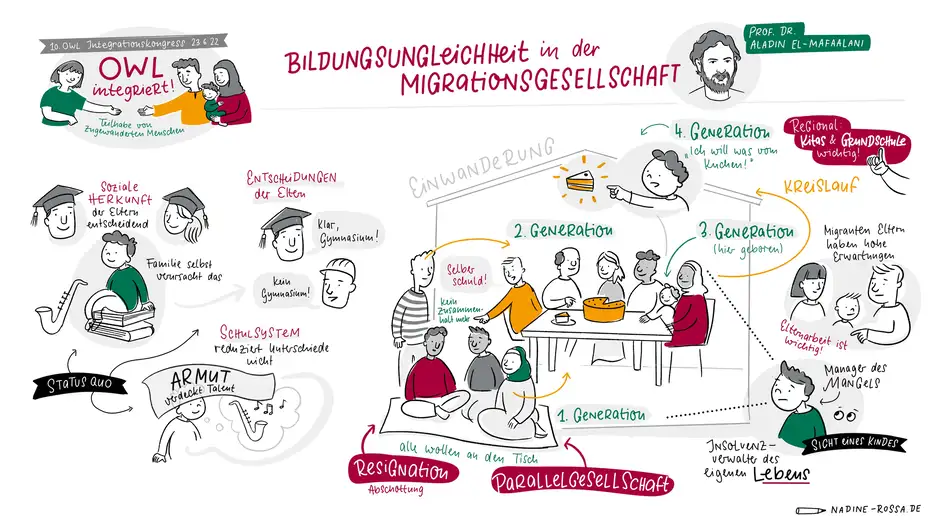 10. OWL Integrationskongress 23.6.22
OWL
integriert!
Teilhabe von
Zugewanderten Menschen
BILDUNGSUNGLEICHHEIT in der
MIGRATIONSGESELLSCHAFT
PROF. DR.
ALADIN EL-MAFAALANI
Soziale
HERKUNFT
der Eltern
entscheidend
Familie selbst
verursacht das
ENTSCHEIDUNGEN
der Eltern
Klar,
Gymnasium!
Kein
Gymnasium!
STATUS QUO
SCHULSYSTEM
reduziert Unterschiede
nicht
ARMUT
verdeckt Talent
EINWANDERUNG
4. Generation
"Ich will was vom
Kuchen!"
2. Generation
3. Generation
(hier geboren)
Selber
schuld!
kein
Zusammen-
halt mehr
1. Generation
alle wollen an den Tisch
RESIGNATION
Abschottung
PARALLELGESELLSCHAFT
REGIONAL-
KITAS & GRUNDSCHULE
wichtig!
KREISLAUF
Migranten Eltern
haben hohe
Erwartungen
Elternarbeit ist
wichtig!
Manager des
MANGELS
SICHT EINES KINDES
INSOLVENZ-
verwalter des
eigenen Lebens
NADINE-ROSSA.DE